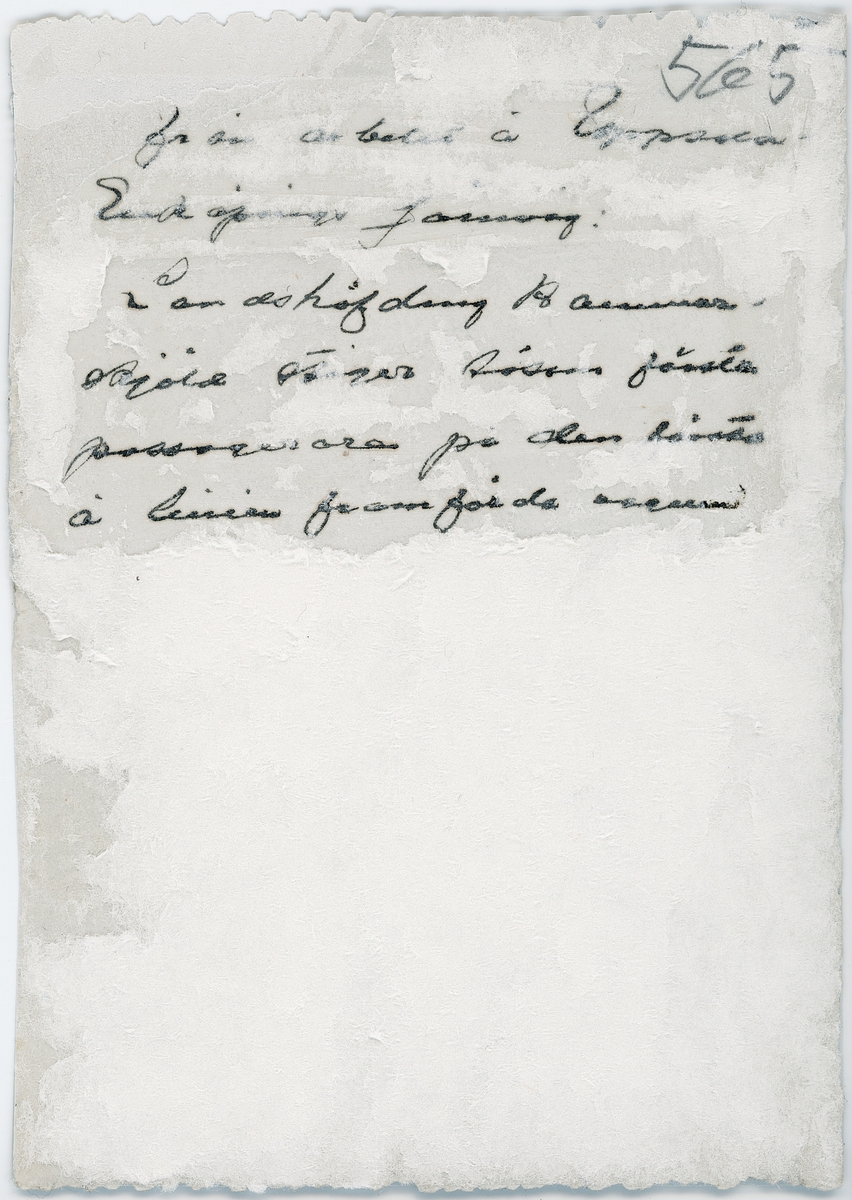 565
från arbetet å Uppsala-
Enköpings järnväg:
Landshöfding Hammar-
skjöld stiger såsom första
passagerare på den första
å linien framförda